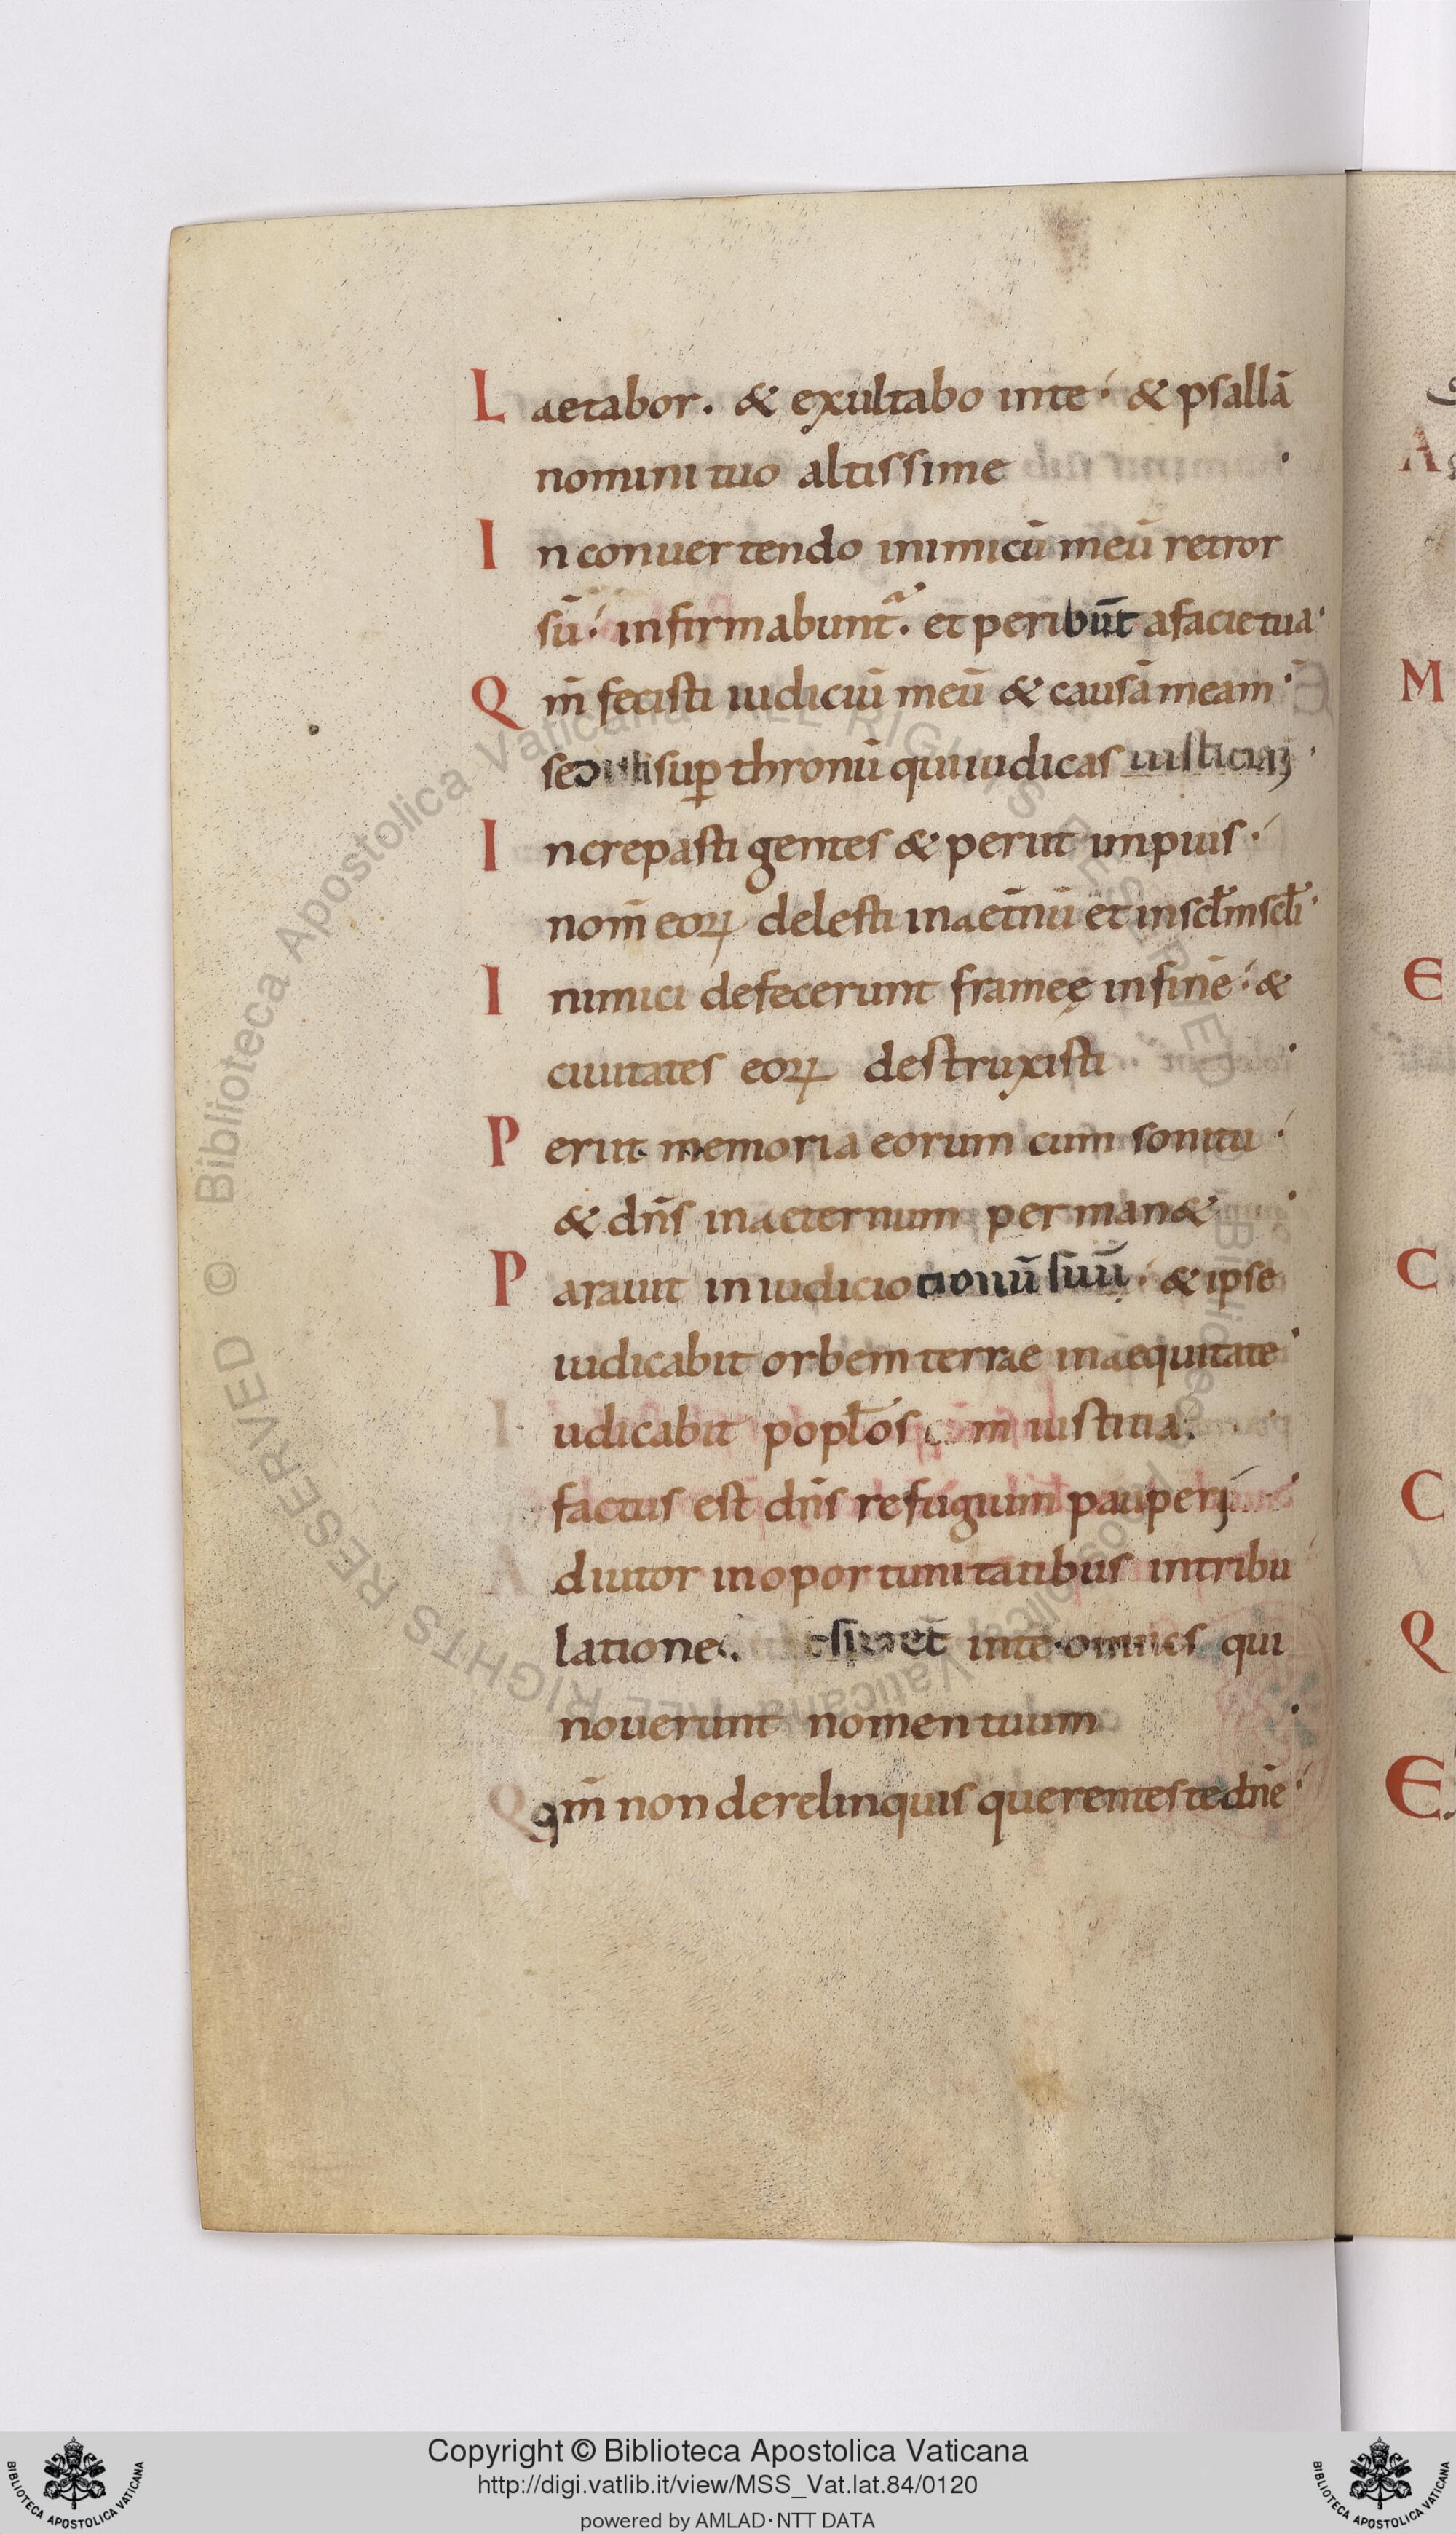 Laetabor. & exultabo inte· & psallā
nomini tuo altissime ·
In conuertendo inimicū meū retror
sū· infirmabunt̄. et peribūt afacietua·
Qm̄ fecisti iudiciū meū & causā meam·
sup thronū quiiudicas
Increpasti gentes & periit impius·
nom̄ eoꝝ delesti inaet̄nū et insc̄lm̄sc̄li·
Inimici defecerunt frameę infinē· &
ciuitates eoꝝ destruxisti ·
Periit memoria eorum cum sonitu·
& dn̄s inaeternum perman& ·
Parauit in iudicio suū· & ipse
iudicabit orbem terrae inaequitate·
Iudicabit popl̄os iustitia.
factus est dn̄s refugium
Adiutor inoportunitatibus intribu
latione. inte·omnes qui
nouerunt nomen tuum ·
Qqm̄ non derelinquis querentes te dn̄e·
A
M
E
C
C
Q
E
© Biblioteca Apostolica Vaticana ALL RIGHTS RESERVED
Copyright © Biblioteca Apostolica Vaticana
http://digi.vatlib.it/view/MSS_Vat.lat.84/0120
powered by AMLAD·NTT DATA
BIBLIOTECA APOSTOLICA VATICANA
BIBLIOTECA APOSTOLICA VATICANA